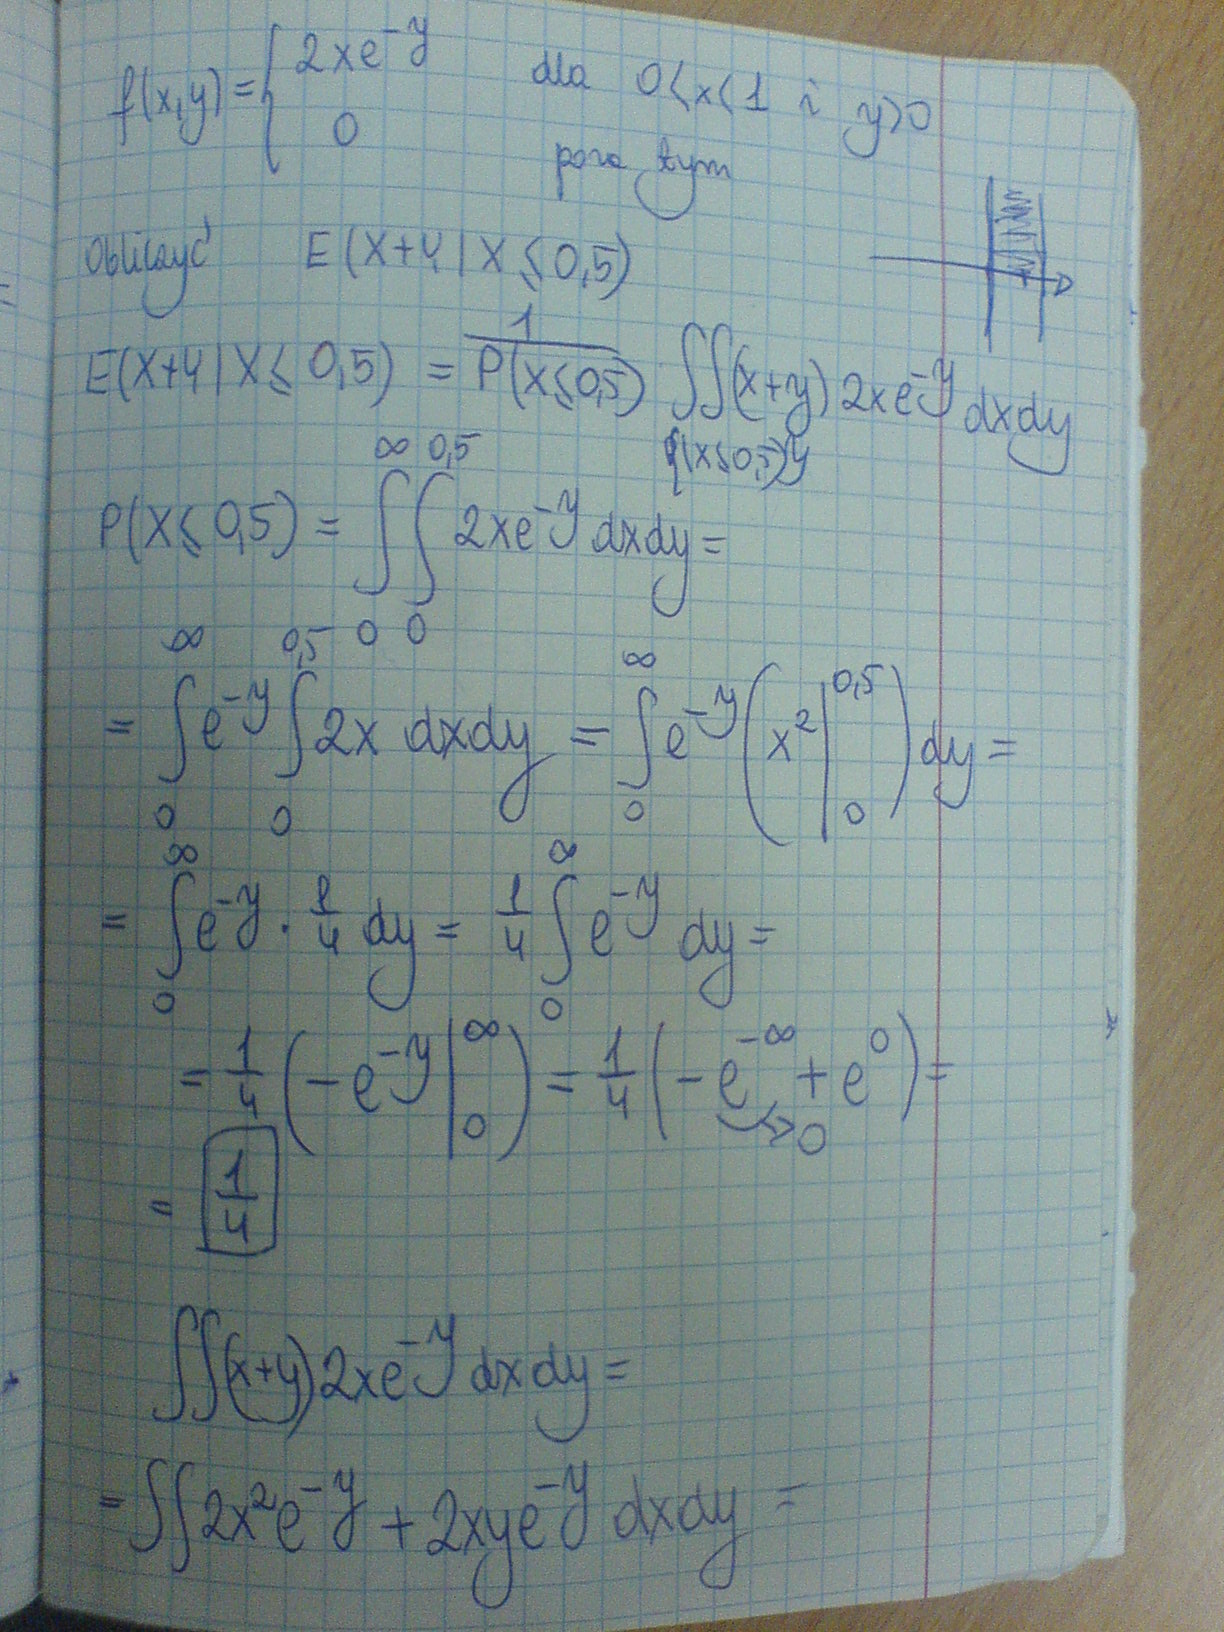 f(x,y) = { 2xe^{-y} dla 0<x<1 i y>0
0 poza tym
Obliczyć E(X+Y | X ≤ 0,5)
E(X+Y | X ≤ 0,5) = 1/P(X≤0,5) ∬(x+y) 2xe^{-y} dxdy
P(X ≤ 0,5) = ∫_0^∞ ∫_0^{0,5} 2xe^{-y} dxdy =
= ∫_0^∞ e^{-y} ∫_0^{0,5} 2x dxdy = ∫_0^∞ e^{-y} (x² |_0^{0,5}) dy =
= ∫_0^∞ e^{-y} · 1/4 dy = 1/4 ∫_0^∞ e^{-y} dy =
= 1/4 (-e^{-y} |_0^∞) = 1/4 (-e^{-∞} + e^0) =
→0
= 1/4
∬(x+y) 2xe^{-y} dxdy =
= ∬ 2x²e^{-y} + 2xye^{-y} dxdy =